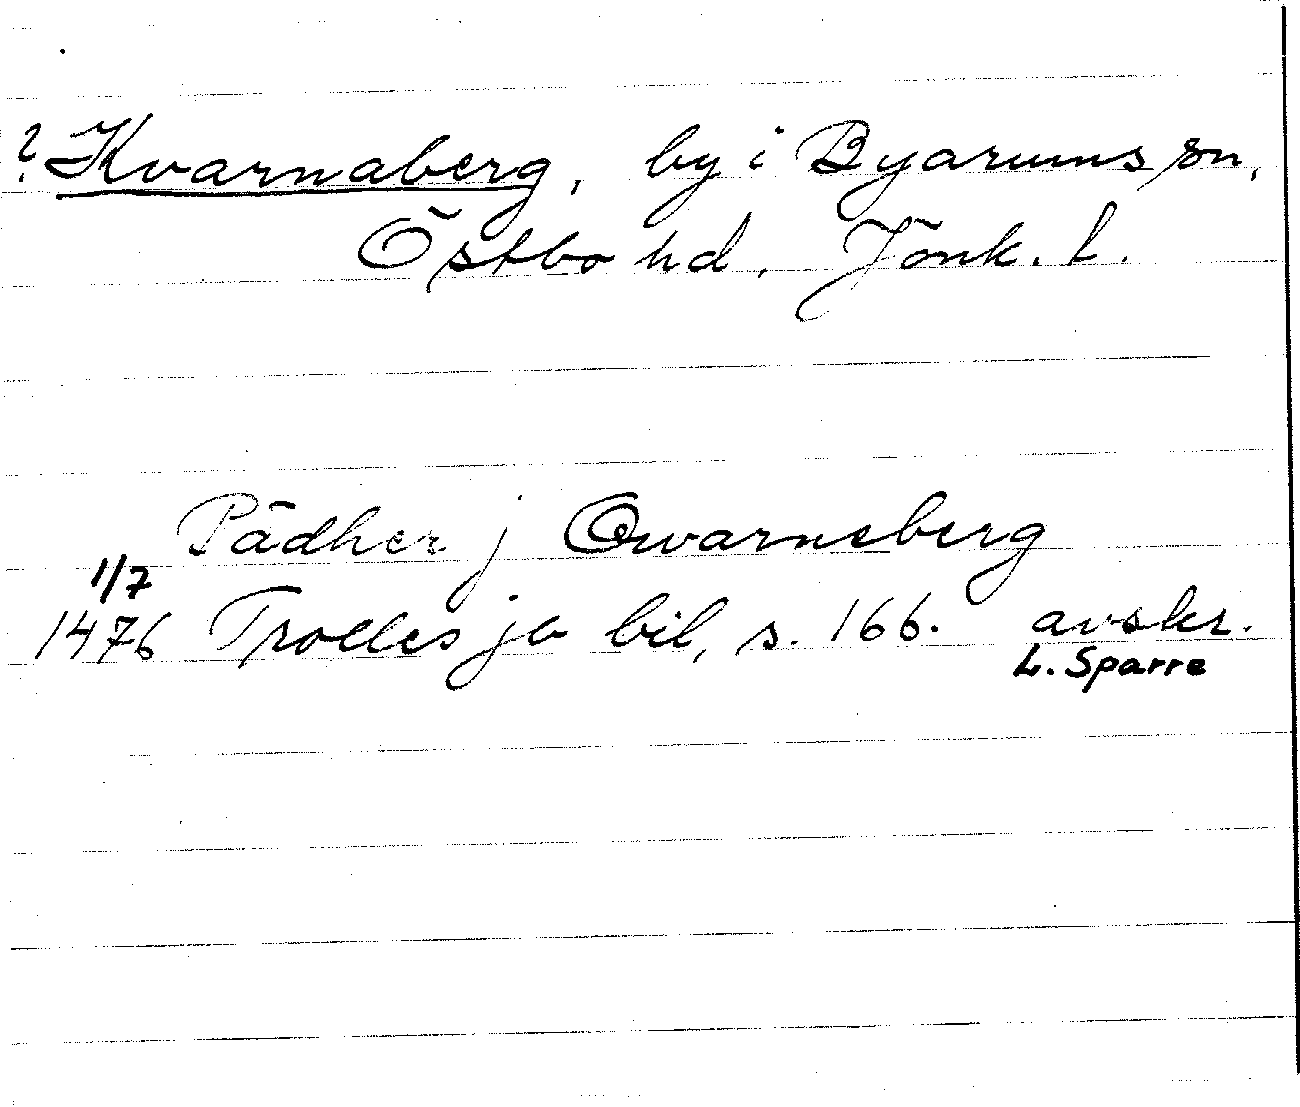 ? Kvarnaberg, by i Byarums sn,
Östbo hd, Jönk. l.
Pädher j Qwarneberg
1/7
1476 Trolles jb bil, s. 166. avskr.
L. Sparre